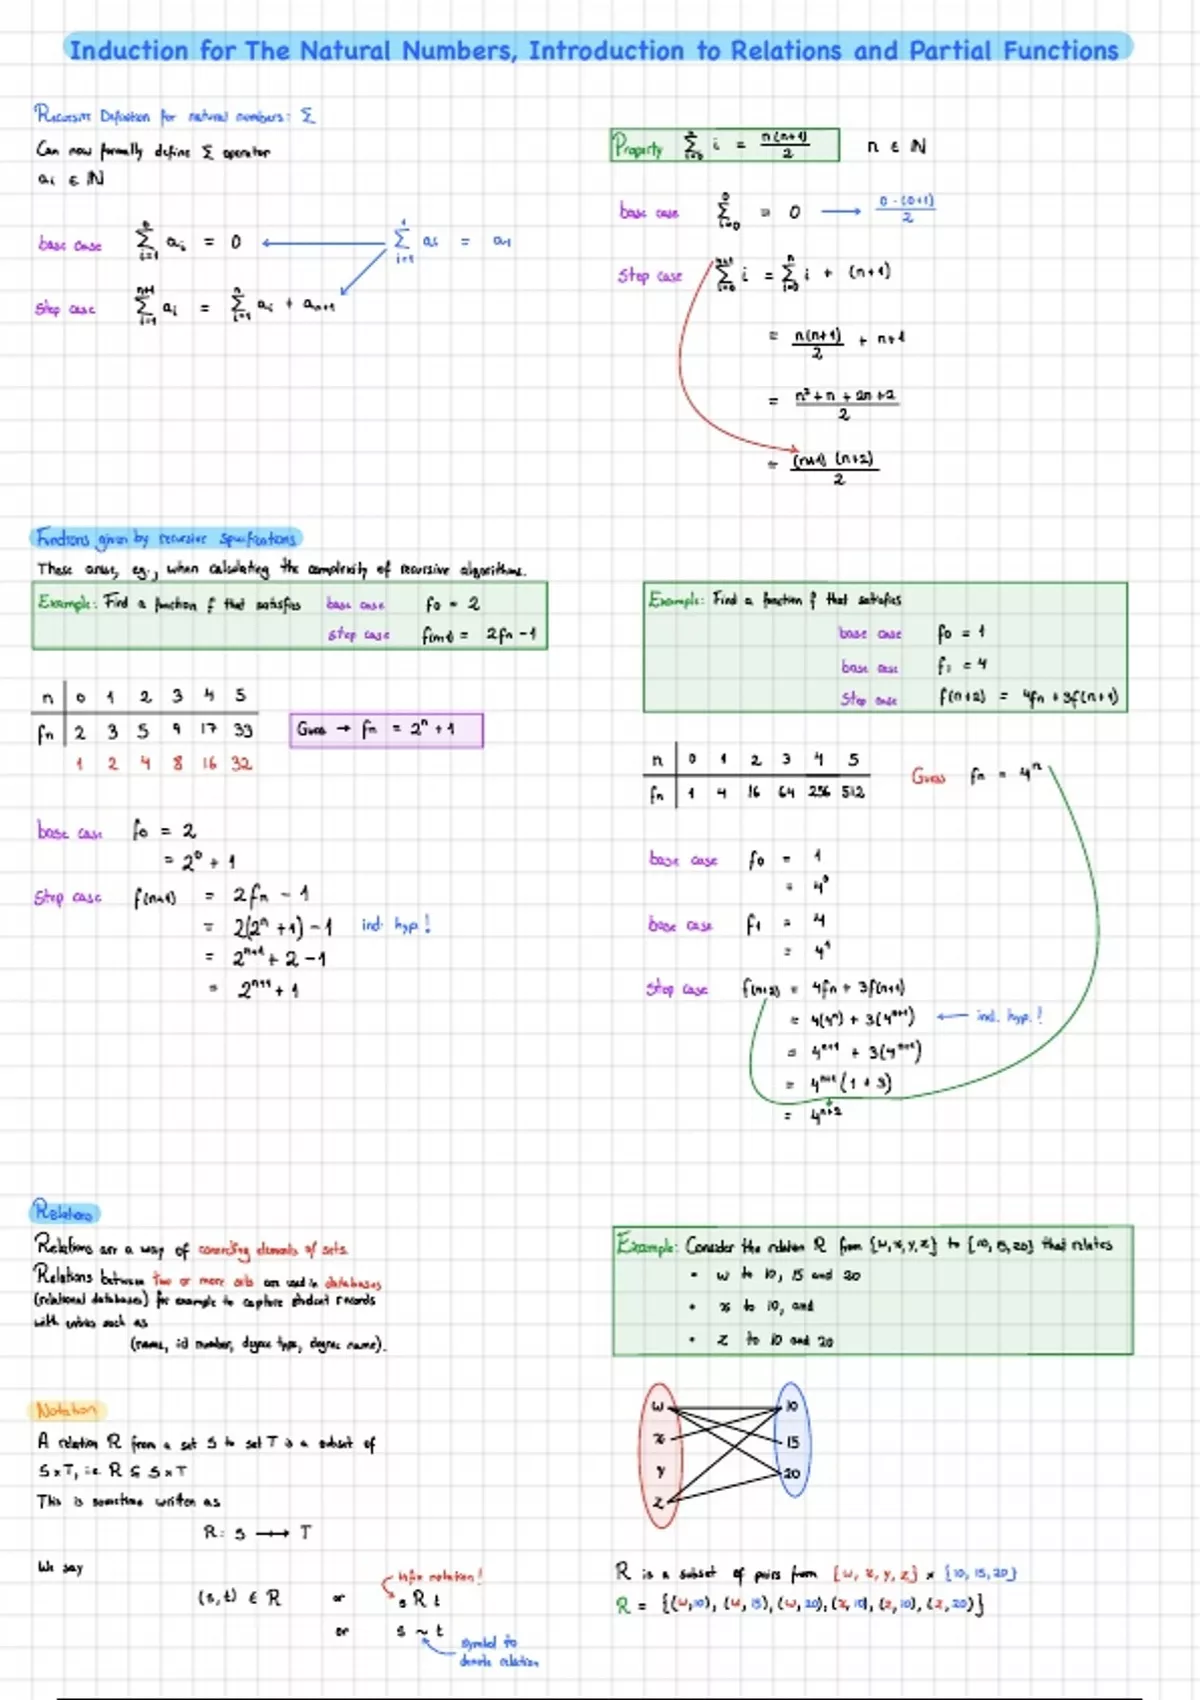 Induction for The Natural Numbers, Introduction to Relations and Partial Functions
Recursive Definition for natural numbers: Σ
Can now formally define Σ operator
aᵢ ∈ ℕ
base case ∑_{i=1}^{0} aᵢ = 0
∑_{i=1}^{1} aᵢ = a₁
step case ∑_{i=1}^{n+1} aᵢ = ∑_{i=1}^{n} aᵢ + aₙ₊₁
Property ∑_{i=0}^{n} i = n(n+1)/2 n ∈ ℕ
base case ∑_{i=0}^{0} = 0 → 0·(0+1)/2
step case ∑_{i=0}^{n+1} i = ∑_{i=0}^{n} i + (n+1)
= n(n+1)/2 + n+1
= n²+n+2n+2/2
= (n+1)(n+2)/2
Functions given by recursive specifications
These arise, eg., when calculating the complexity of recursive algorithms.
Example: Find a function f that satisfies base case f0 = 2
step case f(n+1) = 2fn - 1
n 0 1 2 3 4 5
fn 2 3 5 9 17 33
1 2 4 8 16 32
Guess → fn = 2ⁿ + 1
base case f0 = 2
= 2⁰ + 1
step case f(n+1) = 2fn - 1
= 2(2ⁿ + 1) - 1 ind. hyp!
= 2ⁿ⁺¹ + 2 - 1
= 2ⁿ⁺¹ + 1
Example: Find a function f that satisfies
base case f0 = 1
base case f1 = 4
step case f(n+2) = 4fn + 3f(n+1)
n 0 1 2 3 4 5
fn 1 4 16 64 256 512
Guess fn = 4ⁿ
base case f0 = 1
= 4⁰
base case f1 = 4
= 4¹
step case f(n+2) = 4fn + 3f(n+1)
= 4(4ⁿ) + 3(4ⁿ⁺¹) ← ind. hyp.!
= 4ⁿ⁺¹ + 3(4ⁿ⁺¹)
= 4ⁿ⁺¹(1 + 3)
= 4ⁿ⁺²
Relations
Relations are a way of connecting elements of sets.
Relations between two or more sets are used in databases
(relational databases) for example to capture student records
with entries such as
(name, id number, degree type, degree name).
Notation
A relation R from a set S to set T is a subset of
S×T, i.e. R ⊆ S×T
This is sometime written as
R: S ⟶ T
We say
infix notation!
(s,t) ∈ R or s R t
or s ~ t
symbol to
denote relation
Example: Consider the relation R from {w,x,y,z} to {10,15,20} that relates
• w to 10, 15 and 20
• x to 10, and
• z to 10 and 20
w 10
x 15
y
20
z
R is a subset of pairs from {w, x, y, z} × {10, 15, 20}
R = {(w,10), (w,15), (w,20), (x,10), (z,10), (z,20)}